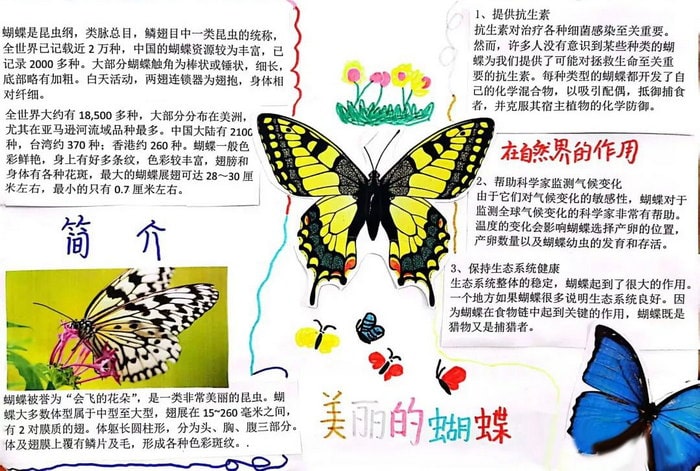 蝴蝶是昆虫纲，类脉总目，鳞翅目中一类昆虫的统称，
全世界已记载近 2 万种，中国的蝴蝶资源较为丰富，已
记录 2000 多种。大部分蝴蝶触角为棒状或锤状，细长，
底部略有加粗。白天活动，两翅连锁器为翅抱，身体相
对纤细。
全世界大约有 18,500 多种，大部分分布在美洲，
尤其在亚马逊河流域品种最多。中国大陆有 2100
种，台湾约 370 种；香港约 260 种。蝴蝶一般色
彩鲜艳，身上有好多条纹，色彩较丰富，翅膀和
身体有各种花斑，最大的蝴蝶展翅可达 28~30 厘
米左右，最小的只有 0.7 厘米左右。
简 介
蝴蝶被誉为“会飞的花朵”，是一类非常美丽的昆虫。蝴
蝶大多数体型属于中型至大型，翅展在 15~260 毫米之间，
有 2 对膜质的翅。体躯长圆柱形，分为头、胸、腹三部分。
体及翅膜上覆有鳞片及毛，形成各种色彩斑纹。.
1、提供抗生素
抗生素对治疗各种细菌感染至关重要。
然而，许多人没有意识到某些种类的蝴
蝶为我们提供了可能对拯救生命至关重
要的抗生素。每种类型的蝴蝶都开发了自
己的化学混合物，以吸引配偶，抵御捕食
者，并克服其宿主植物的化学防御。
在自然界的作用
2、帮助科学家监测气候变化
由于它们对气候变化的敏感性，蝴蝶对于
监测全球气候变化的科学家非常有帮助。
温度的变化会影响蝴蝶选择产卵的位置，
产卵数量以及蝴蝶幼虫的发育和存活。
3、保持生态系统健康
生态系统整体的稳定，蝴蝶起到了很大的作用。
一个地方如果蝴蝶很多说明生态系统良好。因
为蝴蝶在食物链中起到关键的作用，蝴蝶既是
猎物又是捕猎者。
美丽的蝴蝶